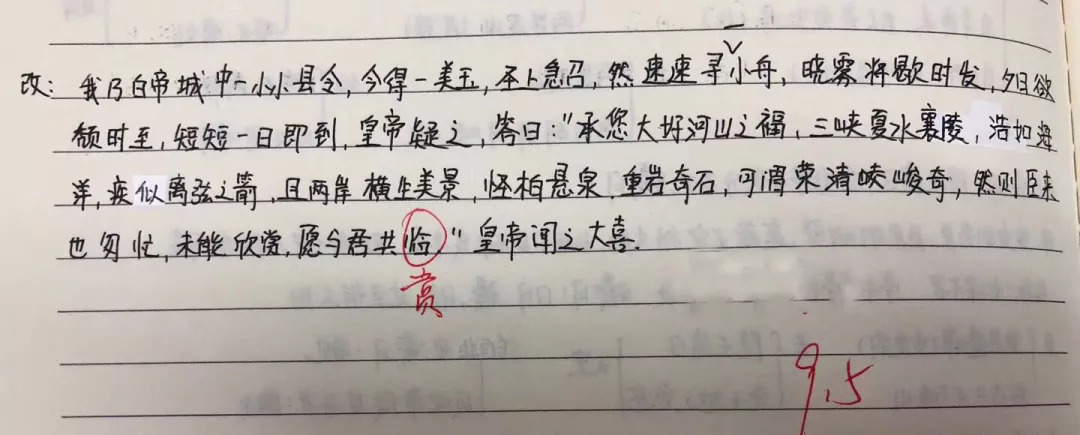 改：我乃白帝城中一小小县令，今得一美玉，本上急召，然速速寻小舟，晓雾将歇时发，夕日欲
颓时至，短短一日即到，皇帝疑之，答曰："承您大好河山之福，三峡夏水襄陵，浩如海
洋，疾似离弦之箭，且两岸横生美景，怪柏悬泉，重岩奇石，可谓荣清峻峻奇，然则臣来
也匆忙，未能欣赏，愿与君共临。"皇帝闻之大喜.
赏
9.5